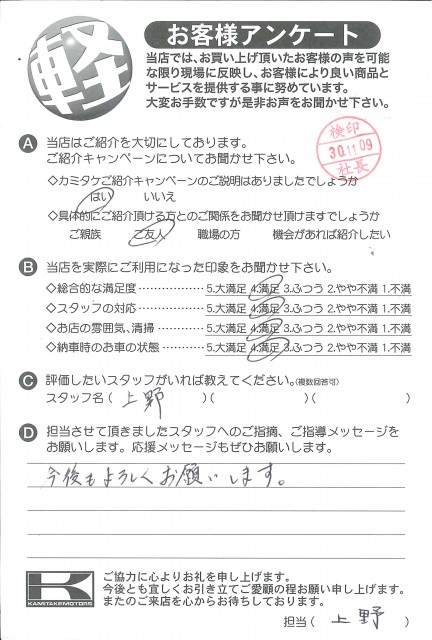 軽
お客様アンケート
当店では、お買い上げ頂いたお客様の声を可能
な限り現場に反映し、お客様により良い商品と
サービスを提供する事に努めています。
大変お手数ですが是非お声をお聞かせ下さい。
検印
30.11.09
社長
A 当店はご紹介を大切にしております。
ご紹介キャンペーンについてお聞かせ下さい。
◇カミタケご紹介キャンペーンのご説明はありましたでしょうか
はい いいえ
◇具体的にご紹介頂ける方とのご関係をお聞かせ頂けますでしょうか
ご親族 ご友人 職場の方 機会があれば紹介したい
B 当店を実際にご利用になった印象をお聞かせ下さい。
◇総合的な満足度 ‥‥‥‥‥ 5.大満足 4.満足 3.ふつう 2.やや不満 1.不満
◇スタッフの対応 ‥‥‥‥‥ 5.大満足 4.満足 3.ふつう 2.やや不満 1.不満
◇お店の雰囲気、清掃 ‥‥‥ 5.大満足 4.満足 3.ふつう 2.やや不満 1.不満
◇納車時のお車の状態 ‥‥‥ 5.大満足 4.満足 3.ふつう 2.やや不満 1.不満
C 評価したいスタッフがいれば教えてください。(複数回答可)
スタッフ名( 上野 )( )( )
D 担当させて頂きましたスタッフへのご指摘、ご指導メッセージを
お願いします。応援メッセージもぜひお願いします。
今後もよろしくお願いします。
K
KAMITAKEMOTORS
ご協力に心よりお礼を申し上げます。
今後とも宜しくお引き立てご愛顧の程お願い申し上げます。
またのご来店を心からお待ちしております。
担当( 上野 )